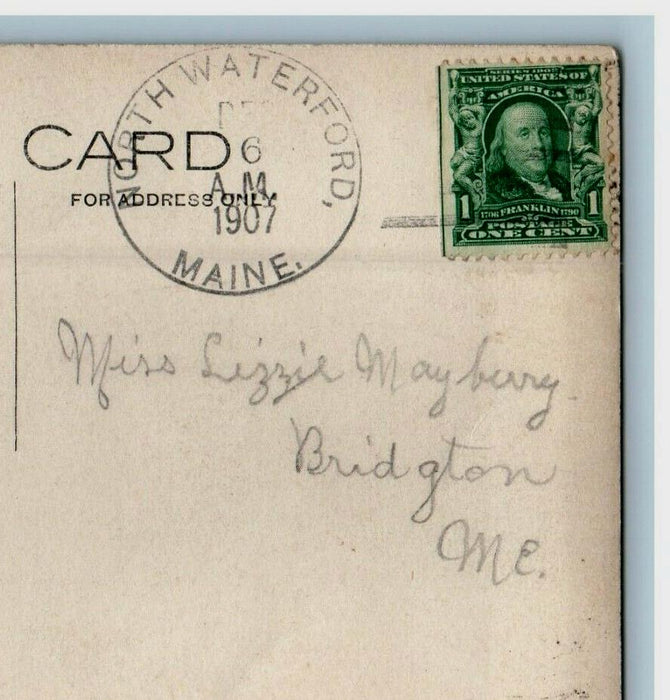 NORTH WATERFORD,
DEC
6
A.M.
1907
MAINE.
CARD
FOR ADDRESS ONLY
SERIES 1902
UNITED STATES OF
AMERICA
1 1706 FRANKLIN 1790 1
POSTAGE
ONE CENT
Miss Lizzie Mayberry
Bridgton
Me.